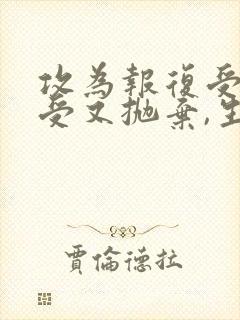 攻為報復受
受又拋棄,生
賈倫德拉